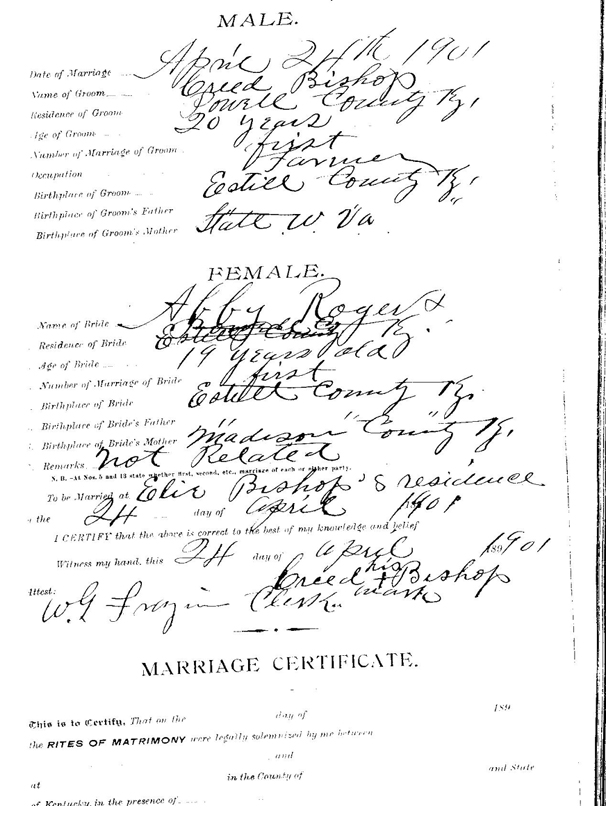 MALE.
Date of Marriage April 24th 1901
Name of Groom Creed Bishop
Residence of Groom Powell County Ky.
Age of Groom 20 years
Number of Marriage of Groom first
Occupation Farmer
Birthplace of Groom Estill County Ky.
Birthplace of Groom's Father " "
Birthplace of Groom's Mother State W. Va
FEMALE.
Name of Bride Abby Rogers
Residence of Bride Estill County Ky.
Age of Bride 19 years old
Number of Marriage of Bride first
Birthplace of Bride Estill County Ky.
Birthplace of Bride's Father " " "
Birthplace of Bride's Mother Madison County Ky.
Remarks. Not Related
N. B.—At Nos. 5 and 13 state whether first, second, etc., marriage of each or either party.
To be Married at Bishop's residence
the 24 day of April 1901
I CERTIFY that the above is correct to the best of my knowledge and belief
Witness my hand, this 24 day of April 1901
his
Creed + Bishop
mark
Attest:
W.G Frazier Clerk
MARRIAGE CERTIFICATE.
This is to Certify, That on the day of 189
the RITES OF MATRIMONY were legally solemnized by me between
and
at in the County of and State
of Kentucky, in the presence of